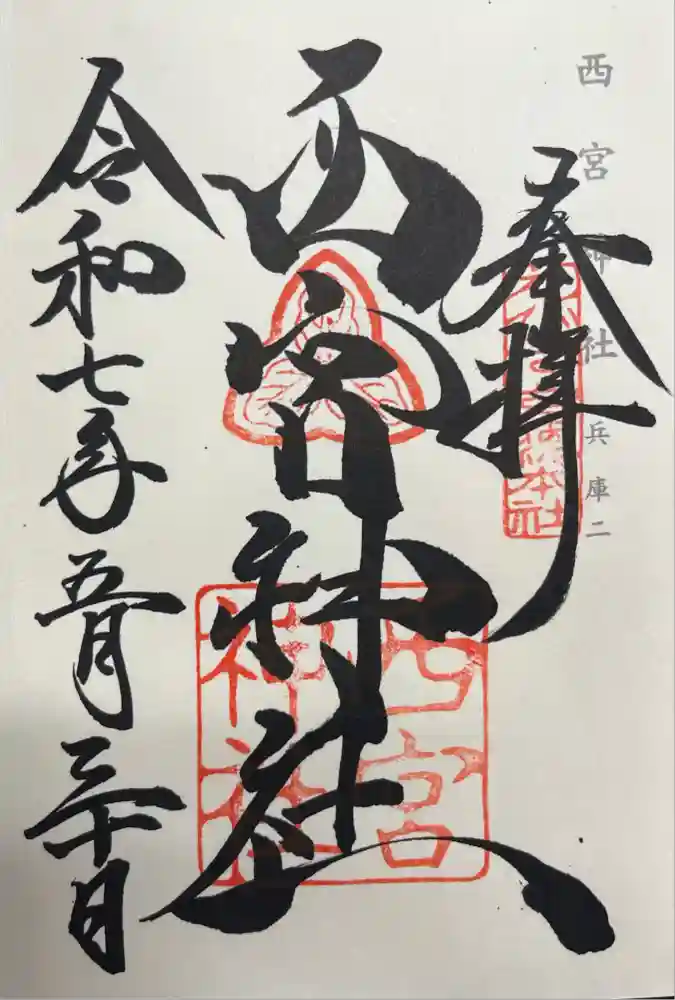 西宮神社 兵庫二
奉拝
本社
西宮神社
西宮
神社
令和七年五月三十日